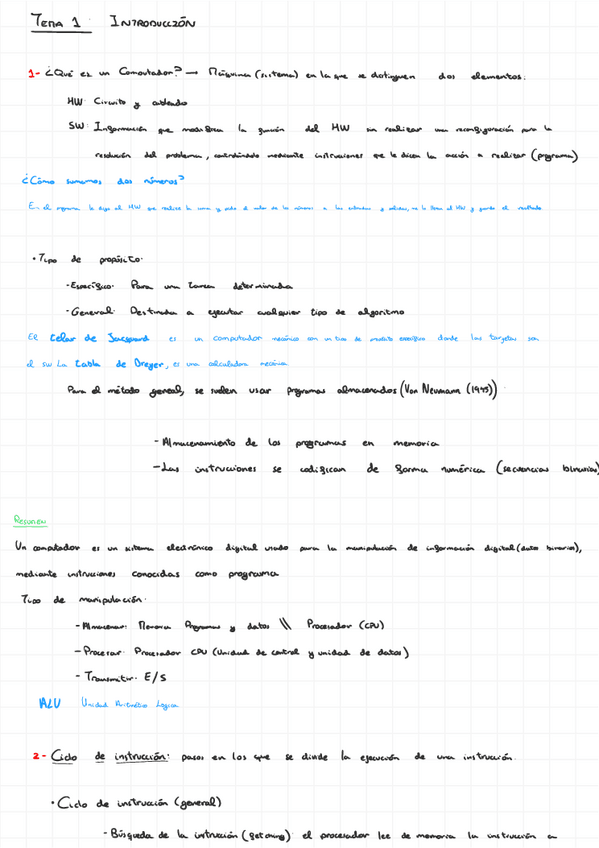 TEMA 1 : INTRODUCCIÓN
1- ¿Qué es un Computador? → Máquina (sistema) en la que se distinguen dos elementos:
HW: Circuito y cableado
SW: Información que modifica la función del HW sin realizar una reconfiguración para la
resolución del problema, controlándolo mediante instrucciones que le dicen la acción a realizar (programa)
¿Cómo sumamos dos números?
En el programa le digo al HW que realice la suma y pido el valor de los números a las entradas y salidas, se lo llevo al HW y guardo el resultado
• Tipo de propósito:
- Específico: Para una tarea determinada
- General: Destinada a ejecutar cualquier tipo de algoritmo
El telar de Jacquard es un computador mecánico con un tipo de propósito específico donde las tarjetas son
el SW La tabla de Dreyer, es una calculadora mecánica
Para el método general, se suelen usar programas almacenados (Von Neumann (1945))
- Almacenamiento de los programas en memoria
- Las instrucciones se codifican de forma numérica (secuencias binarias)
Resumen
Un computador es un sistema electrónico digital usado para la manipulación de información digital (datos binarios),
mediante instrucciones conocidas como programa
Tipo de manipulación:
- Almacenar: Memoria Programas y datos \\ Procesador (CPU)
- Procesar: Procesador CPU (Unidad de control y unidad de datos)
- Transmitir: E/S
ALU Unidad Aritmético Lógica
2- Ciclo de instrucción: pasos en los que se divide la ejecución de una instrucción.
• Ciclo de instrucción (general)
- Búsqueda de la instrucción (fetching): el procesador lee de memoria la instrucción a